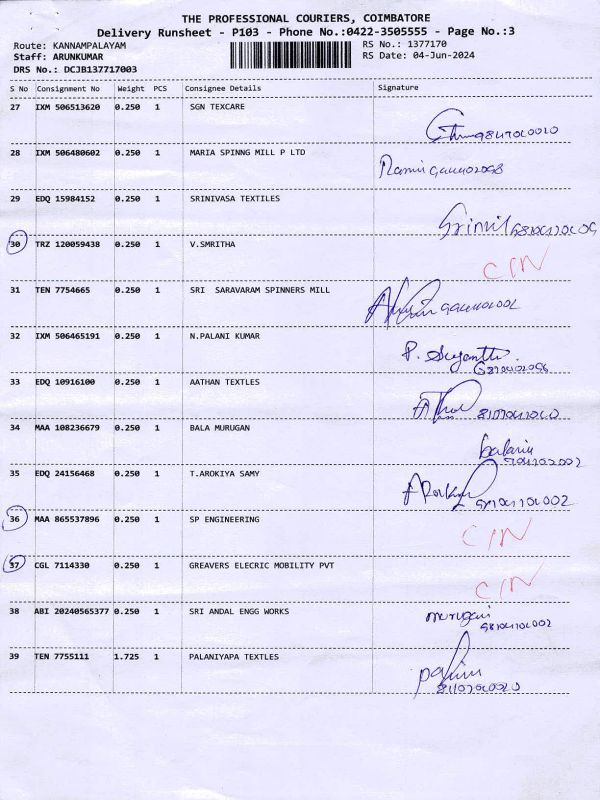 THE PROFESSIONAL COURIERS, COIMBATORE
Delivery Runsheet - P103 - Phone No.:0422-3505555 - Page No.:3
Route: KANNAMPALAYAM RS No.: 1377170
Staff: ARUNKUMAR RS Date: 04-Jun-2024
DRS No.: DCJB137717003
S No Consignment No Weight PCS Consignee Details Signature
27 IXM 506513620 0.250 1 SGN TEXCARE
28 IXM 506480602 0.250 1 MARIA SPINNG MILL P LTD
29 EDQ 15984152 0.250 1 SRINIVASA TEXTILES
30 TRZ 120059438 0.250 1 V.SMRITHA C/N
31 TEN 7754665 0.250 1 SRI SARAVARAM SPINNERS MILL
32 IXM 506465191 0.250 1 N.PALANI KUMAR
33 EDQ 10916100 0.250 1 AATHAN TEXTLES
34 MAA 108236679 0.250 1 BALA MURUGAN
35 EDQ 24156468 0.250 1 T.AROKIYA SAMY
36 MAA 865537896 0.250 1 SP ENGINEERING C/N
37 CGL 7114330 0.250 1 GREAVERS ELECRIC MOBILITY PVT C/N
38 ABI 20240565377 0.250 1 SRI ANDAL ENGG WORKS
39 TEN 7755111 1.725 1 PALANIYAPA TEXTLES